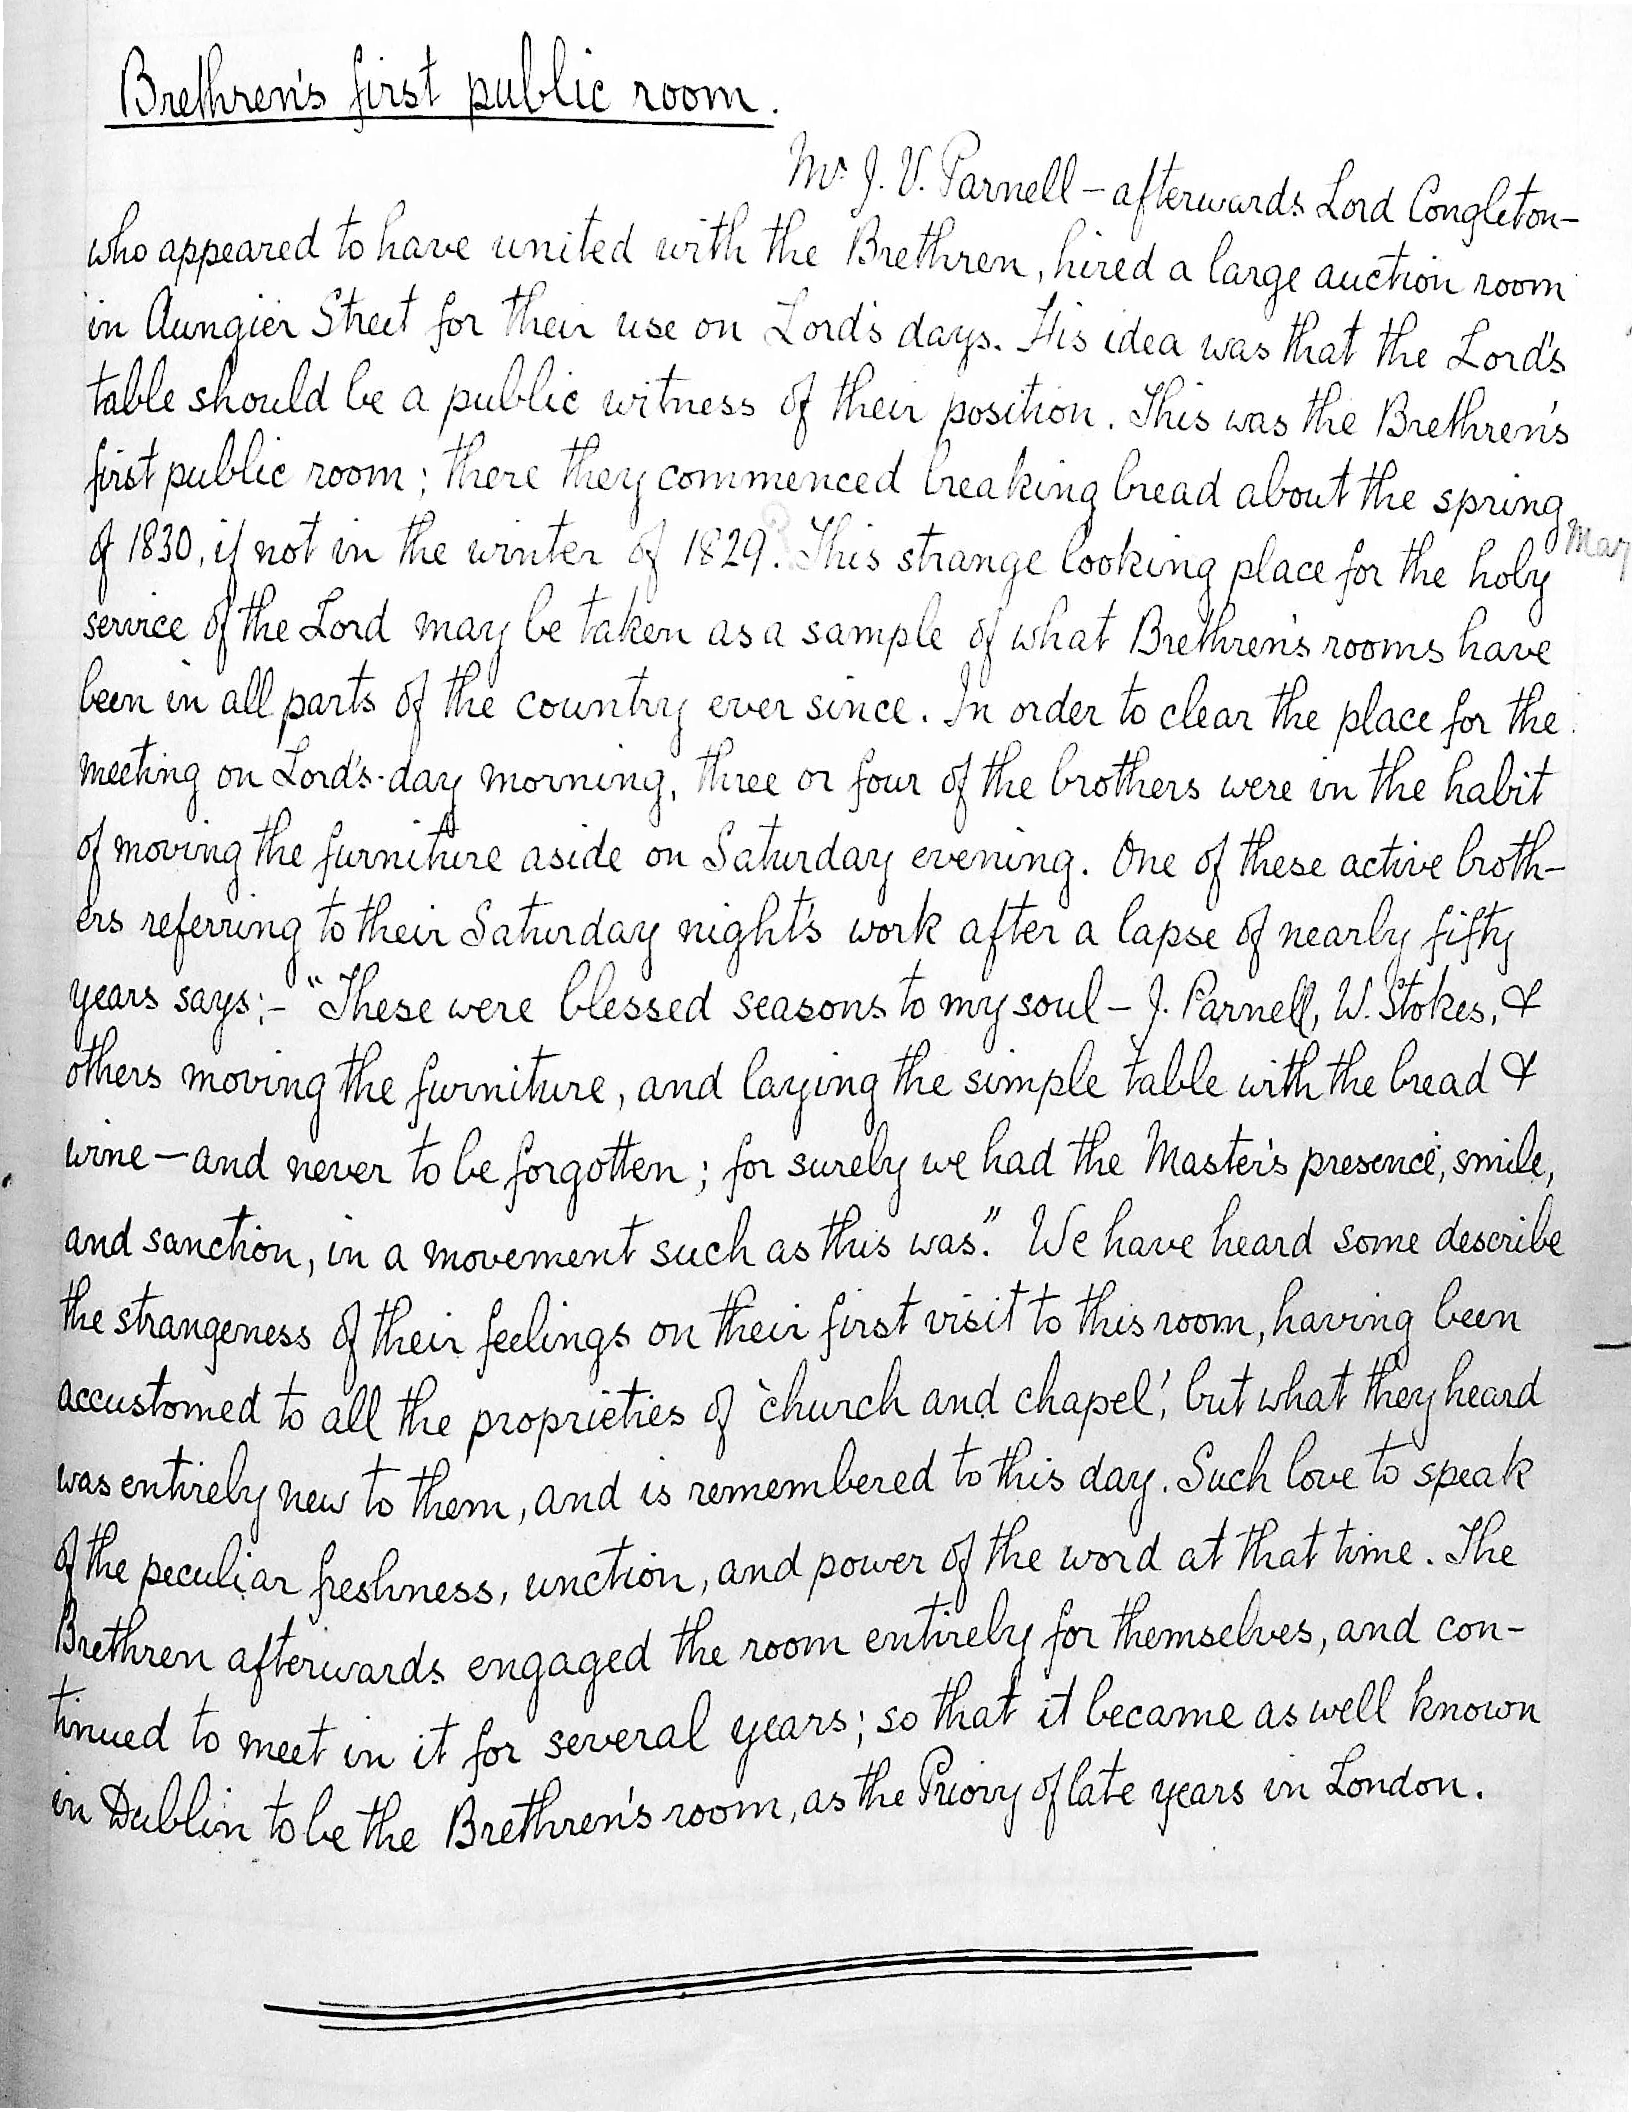 Brethren's first public room.
Mr J. V. Parnell – afterwards Lord Congleton –
who appeared to have united with the Brethren, hired a large auction room
in Aungier Street for their use on Lord's days. His idea was that the Lord's
table should be a public witness of their position. This was the Brethren's
first public room; there they commenced breaking bread about the spring
of 1830, if not in the winter of 1829. This strange looking place for the holy
May
service of the Lord may be taken as a sample of what Brethren's rooms have
been in all parts of the country ever since. In order to clear the place for the
meeting on Lord's-day morning, three or four of the brothers were in the habit
of moving the furniture aside on Saturday evening. One of these active broth-
ers referring to their Saturday night's work after a lapse of nearly fifty
years says:– "These were blessed seasons to my soul – J. Parnell, W. Stokes, &
others moving the furniture, and laying the simple table with the bread &
wine – and never to be forgotten; for surely we had the Master's presence, smile,
and sanction, in a movement such as this was." We have heard some describe
the strangeness of their feelings on their first visit to this room, having been
accustomed to all the proprieties of 'church and chapel', but what they heard
was entirely new to them, and is remembered to this day. Such love to speak
of the peculiar freshness, unction, and power of the word at that time. The
Brethren afterwards engaged the room entirely for themselves, and con-
tinued to meet in it for several years; so that it became as well known
in Dublin to be the Brethren's room, as the Priory of late years in London.